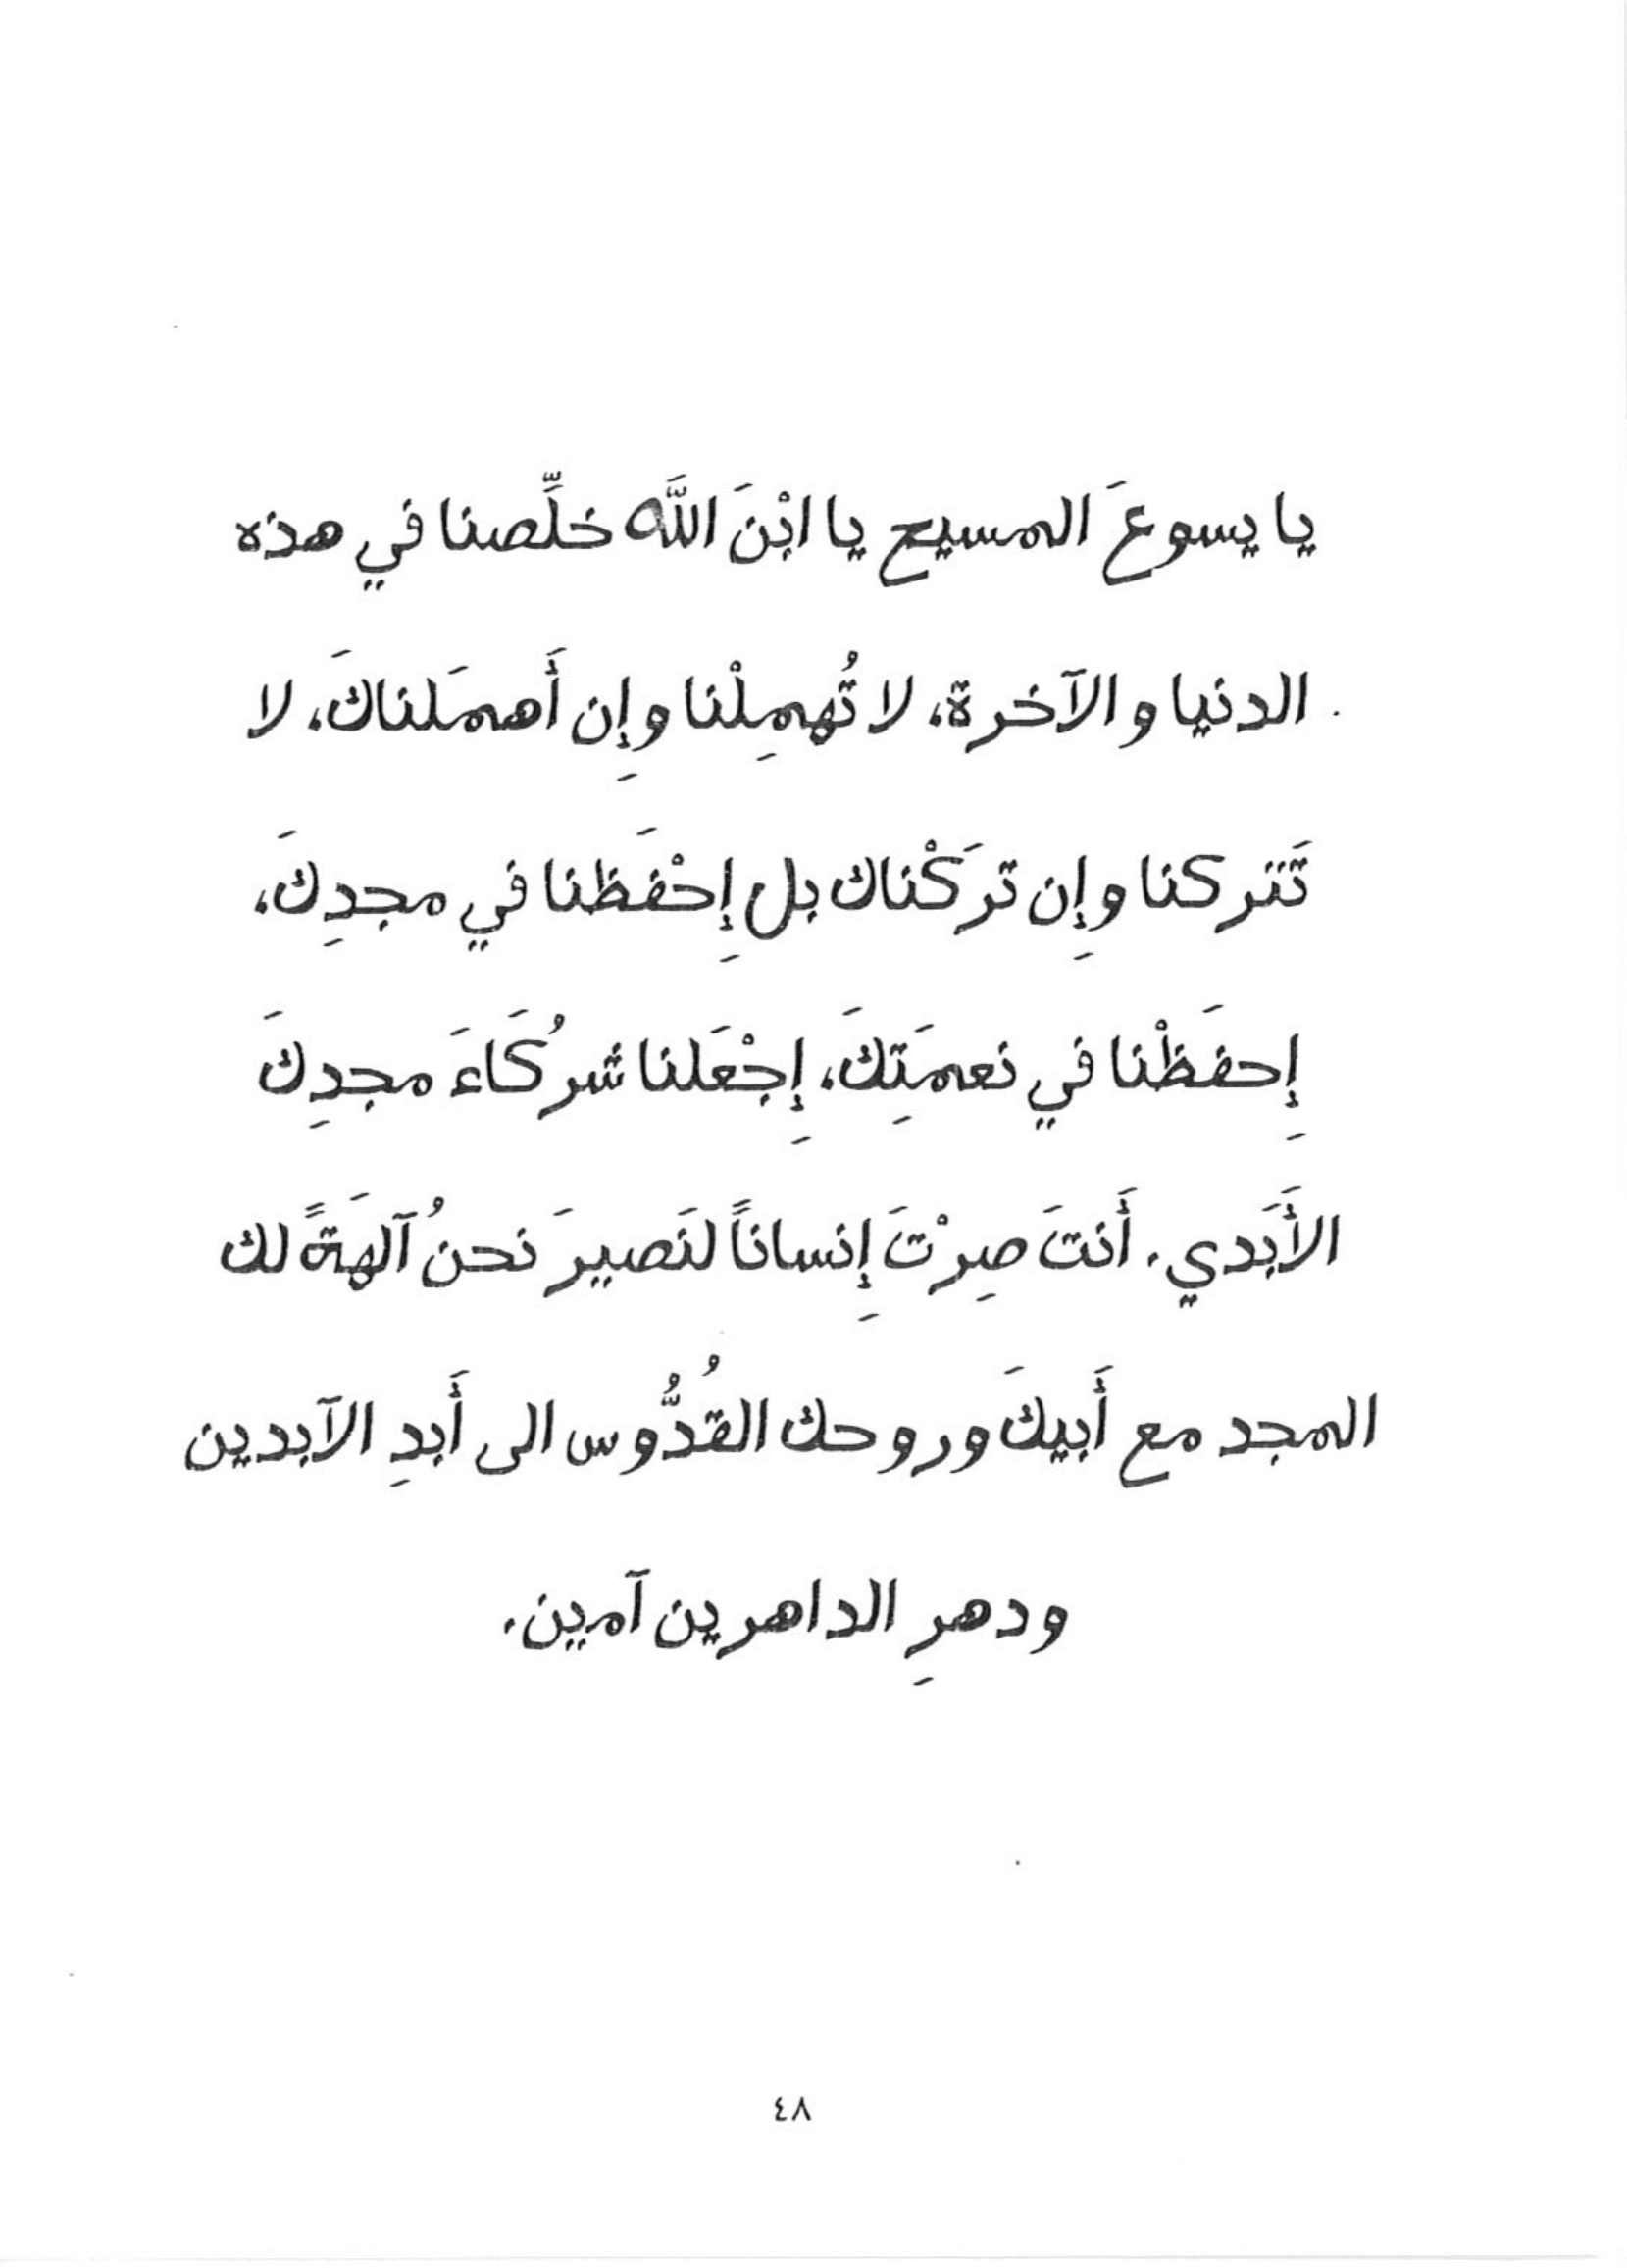 يا يسوعَ المسيح يا ابْنَ اللَّه خلِّصنا في هذه
الدنيا والآخرة، لا تُهمِلْنا وإِن أَهمَلناكَ، لا
تَتركنا وإِن تركْناك بل إِحْفَظنا في مجدِكَ،
إِحفَظْنا في نعمَتِكَ، إِجْعَلنا شركَُاءَ مجدِكَ
الأَبَدي. أَنتَ صِرْتَ إِنساناً لنَصيرَ نحنُ آلهَةً لك
المجد مع أَبيكَ وروحك القُدُّوس الى أَبدِ الآبدين
ودهرِ الداهرين آمين.
٤٨